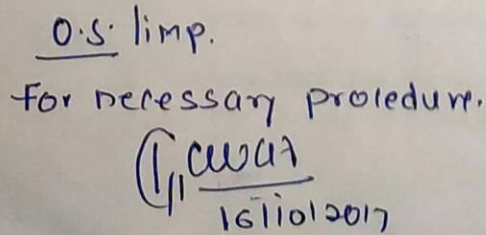 O.S. limp.
For necessary procedure.
16/10/2017